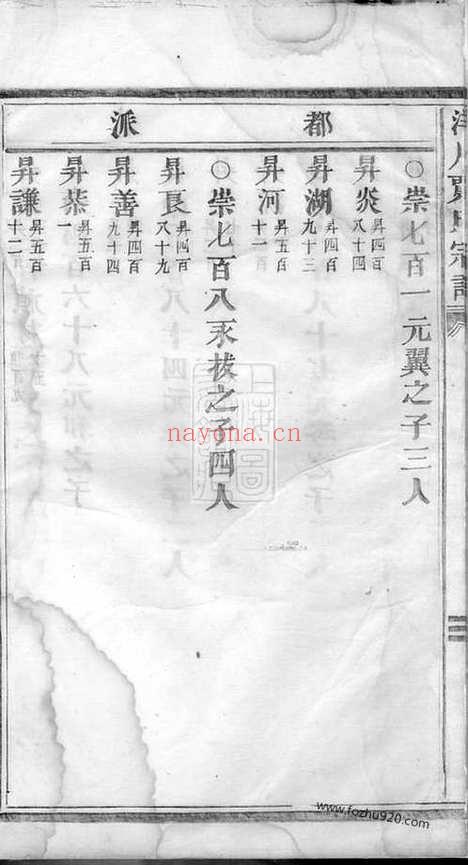 都
派
〇崇七百一元翼之子三人
昇炎 昇四百八十四
昇湖 昇四百九十三
昇河 昇五百十一
〇崇七百八永拔之子四人
昇良 昇四百八十九
昇善 昇四百九十四
昇恭 昇五百一
昇謙 昇五百十二
nayona.cn
www.fozhu920.com